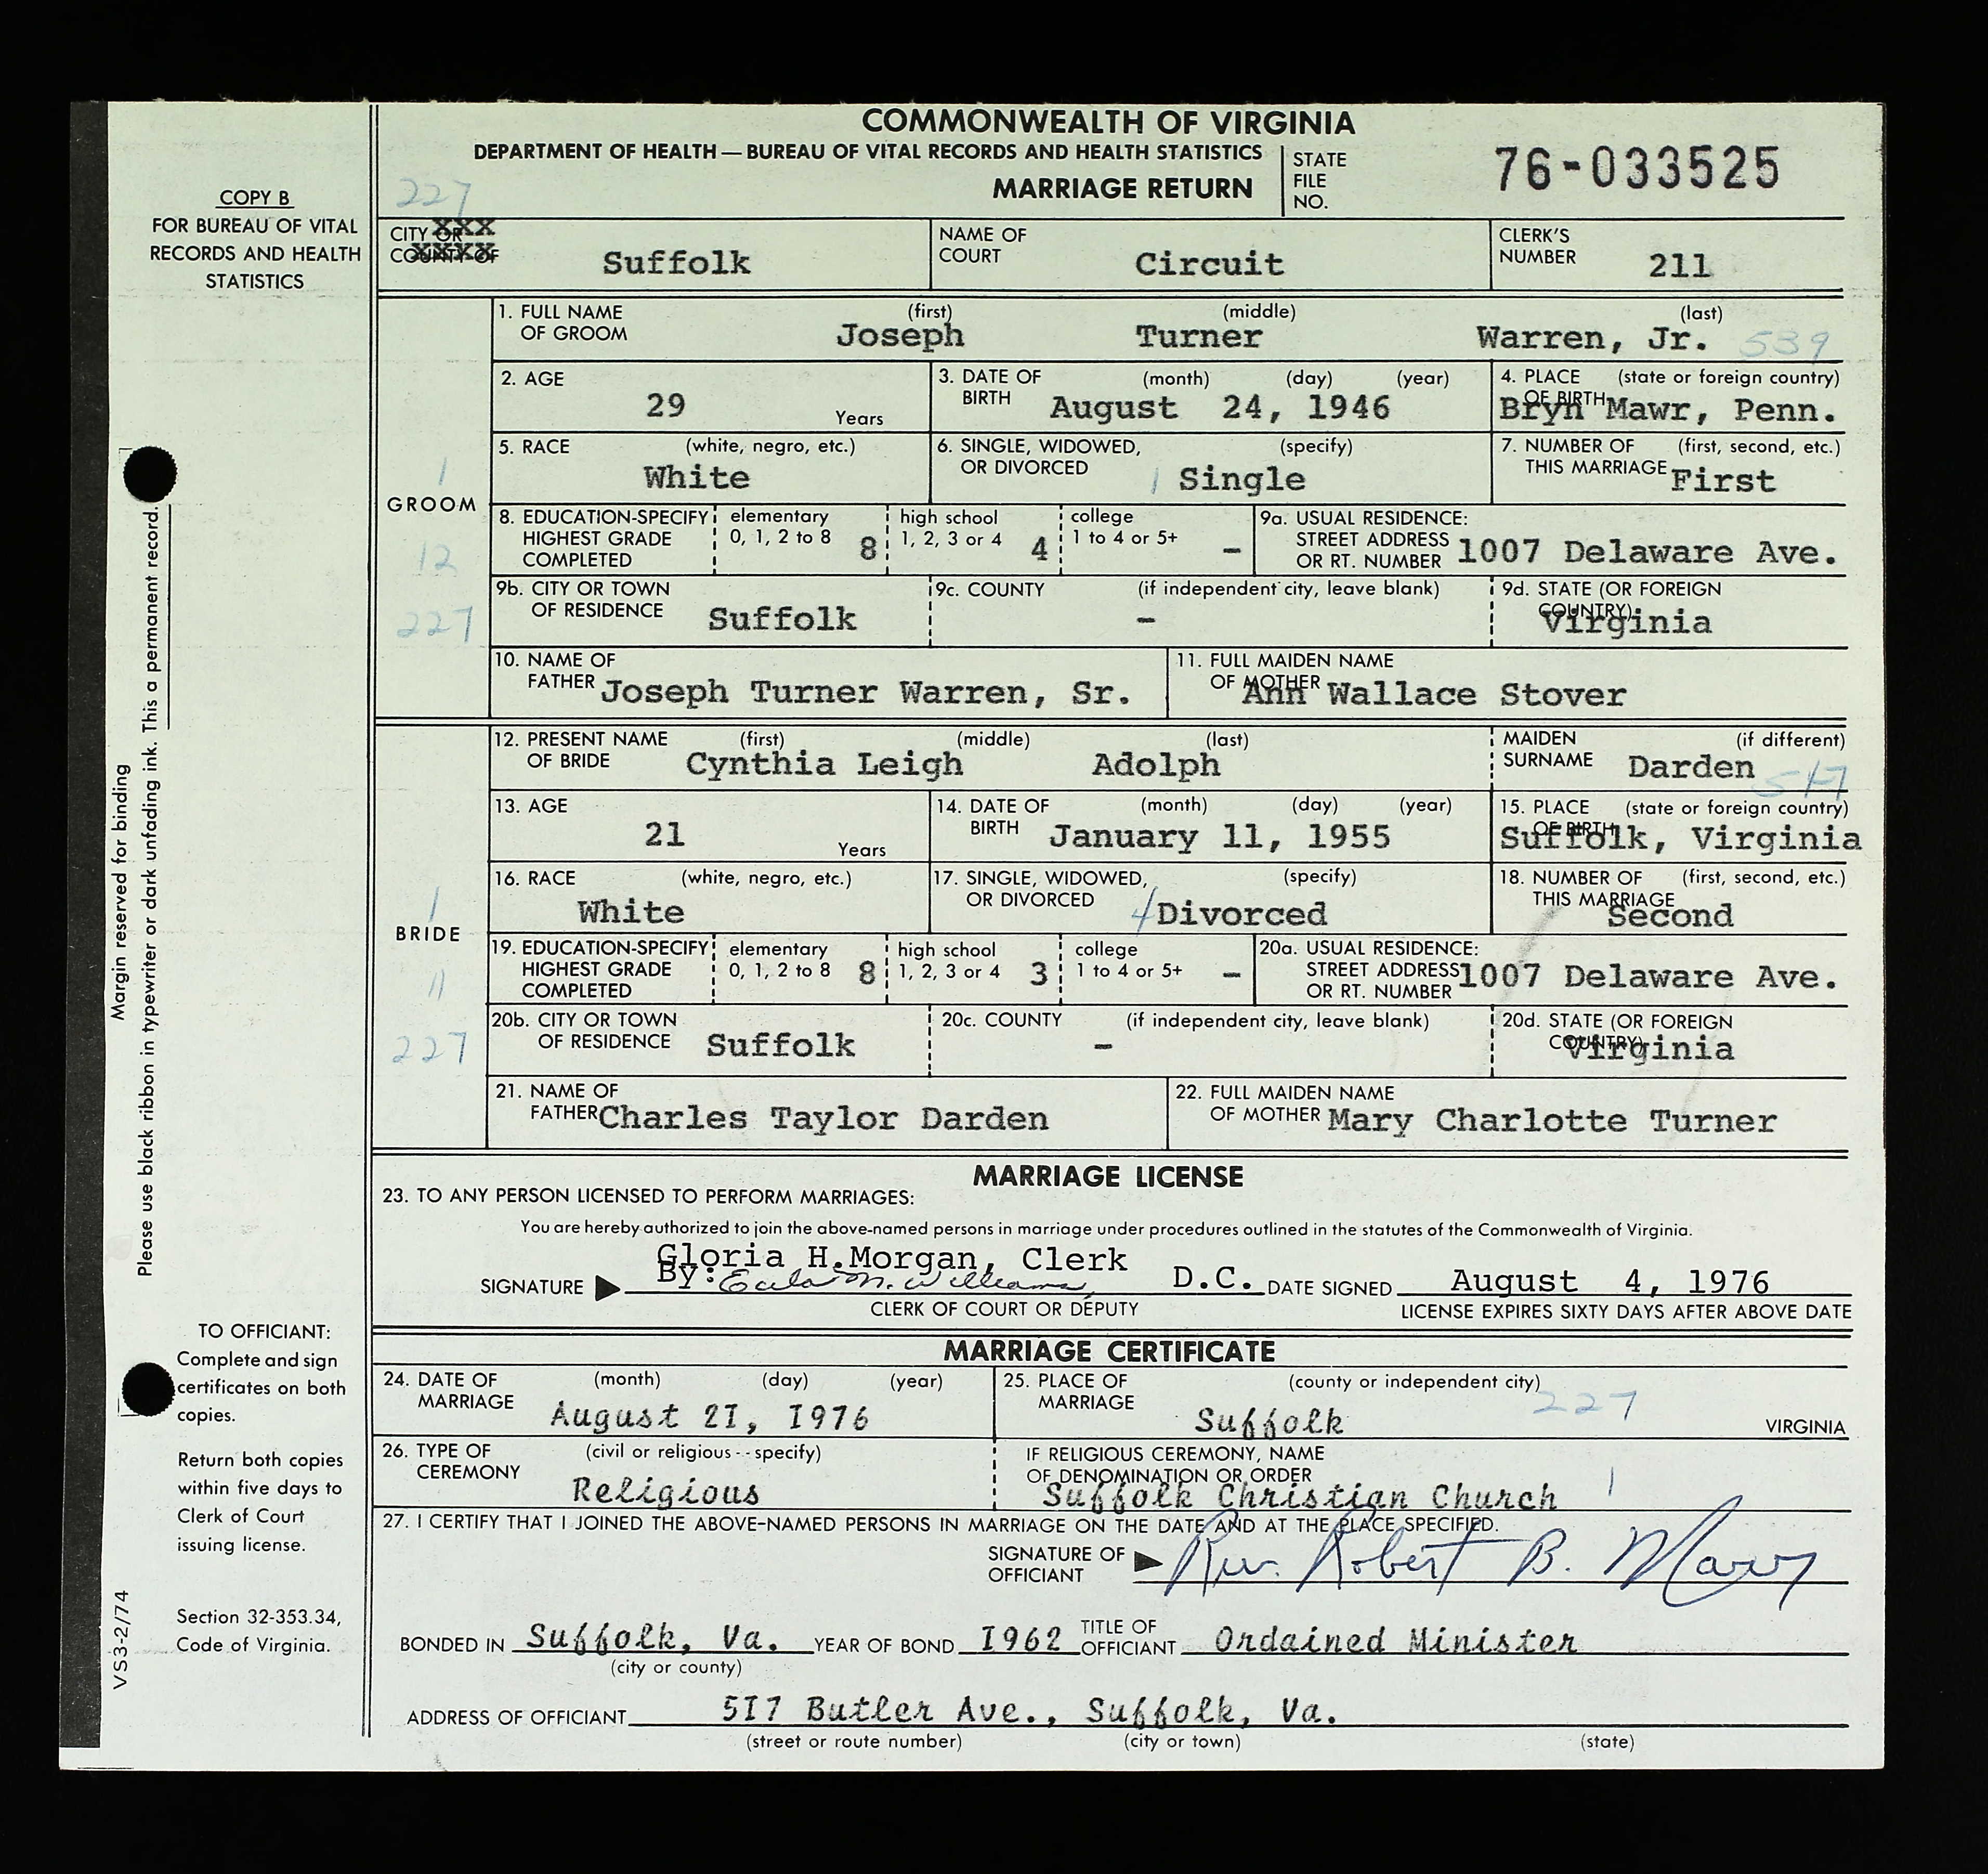 COMMONWEALTH OF VIRGINIA
DEPARTMENT OF HEALTH — BUREAU OF VITAL RECORDS AND HEALTH STATISTICS
MARRIAGE RETURN
STATE FILE NO. 76-033525
227
COPY B
FOR BUREAU OF VITAL
RECORDS AND HEALTH
STATISTICS
CITY OR XXX
COUNTY OF XXXX
Suffolk
NAME OF COURT Circuit
CLERK'S NUMBER 211
1. FULL NAME OF GROOM (first) Joseph (middle) Turner (last) Warren, Jr. 539
2. AGE 29 Years
3. DATE OF BIRTH (month) (day) (year) August 24, 1946
4. PLACE OF BIRTH (state or foreign country) Bryn Mawr, Penn.
5. RACE (white, negro, etc.) White
6. SINGLE, WIDOWED, OR DIVORCED (specify) 1 Single
7. NUMBER OF THIS MARRIAGE (first, second, etc.) First
1
GROOM
12
227
8. EDUCATION-SPECIFY HIGHEST GRADE COMPLETED elementary 0, 1, 2 to 8 8 high school 1, 2, 3 or 4 4 college 1 to 4 or 5+ -
9a. USUAL RESIDENCE: STREET ADDRESS OR RT. NUMBER 1007 Delaware Ave.
9b. CITY OR TOWN OF RESIDENCE Suffolk
9c. COUNTY (if independent city, leave blank) -
9d. STATE (OR FOREIGN COUNTRY) Virginia
10. NAME OF FATHER Joseph Turner Warren, Sr.
11. FULL MAIDEN NAME OF MOTHER Ann Wallace Stover
12. PRESENT NAME OF BRIDE (first) (middle) (last) Cynthia Leigh Adolph
MAIDEN SURNAME (if different) Darden
13. AGE 21 Years
14. DATE OF BIRTH (month) (day) (year) January 11, 1955
15. PLACE OF BIRTH (state or foreign country) Suffolk, Virginia
16. RACE (white, negro, etc.) White
17. SINGLE, WIDOWED, OR DIVORCED (specify) 4 Divorced
18. NUMBER OF THIS MARRIAGE (first, second, etc.) Second
1
BRIDE
11
227
19. EDUCATION-SPECIFY HIGHEST GRADE COMPLETED elementary 0, 1, 2 to 8 8 high school 1, 2, 3 or 4 3 college 1 to 4 or 5+ -
20a. USUAL RESIDENCE: STREET ADDRESS OR RT. NUMBER 1007 Delaware Ave.
20b. CITY OR TOWN OF RESIDENCE Suffolk
20c. COUNTY (if independent city, leave blank) -
20d. STATE (OR FOREIGN COUNTRY) Virginia
21. NAME OF FATHER Charles Taylor Darden
22. FULL MAIDEN NAME OF MOTHER Mary Charlotte Turner
MARRIAGE LICENSE
23. TO ANY PERSON LICENSED TO PERFORM MARRIAGES:
You are hereby authorized to join the above-named persons in marriage under procedures outlined in the statutes of the Commonwealth of Virginia.
Gloria H.Morgan, Clerk
SIGNATURE By: M. Williams, D.C. DATE SIGNED August 4, 1976
CLERK OF COURT OR DEPUTY
LICENSE EXPIRES SIXTY DAYS AFTER ABOVE DATE
MARRIAGE CERTIFICATE
24. DATE OF MARRIAGE (month) (day) (year) August 2I, I976
25. PLACE OF MARRIAGE (county or independent city) 227 Suffolk VIRGINIA
26. TYPE OF CEREMONY (civil or religious -- specify) Religious
IF RELIGIOUS CEREMONY, NAME OF DENOMINATION OR ORDER Suffolk Christian Church 1
27. I CERTIFY THAT I JOINED THE ABOVE-NAMED PERSONS IN MARRIAGE ON THE DATE AND AT THE PLACE SPECIFIED.
SIGNATURE OF OFFICIANT Rev. Robert B.
BONDED IN Suffolk, Va. YEAR OF BOND I962 TITLE OF OFFICIANT Ordained Minister
(city or county)
ADDRESS OF OFFICIANT 5I7 Butler Ave., Suffolk, Va.
(street or route number) (city or town) (state)
Margin reserved for binding
Please use black ribbon in typewriter or dark unfading ink. This a permanent record.
TO OFFICIANT:
Complete and sign
certificates on both
copies.
Return both copies
within five days to
Clerk of Court
issuing license.
Section 32-353.34,
Code of Virginia.
VS3-2/74